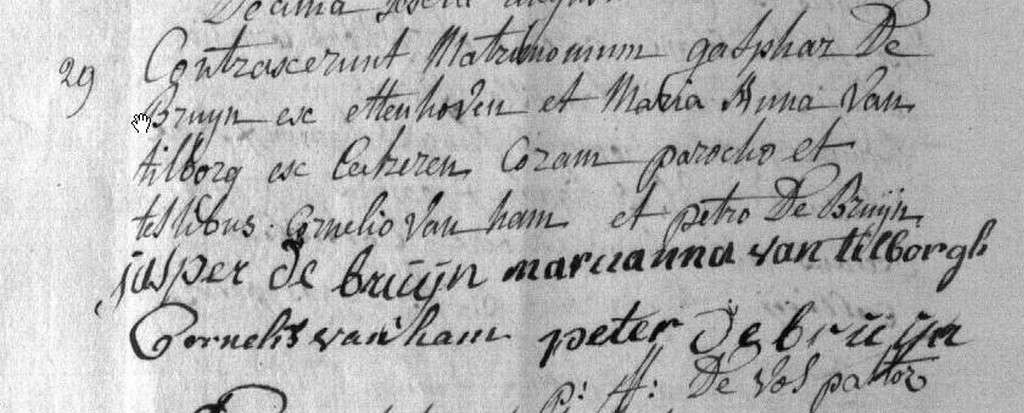 Decima
29 Contraxcerunt Matrimonium gasphar De
Bruyn exc ettenhoven et Maria Anna Van
tilborg exc Eekeren Coram parocho et
testibus Cornelio Van ham et petro De Bruijn
jasper de bruijn maruanna van tilborgh
Cornelis van ham peter De bruijn
p: H: De Vos pastor